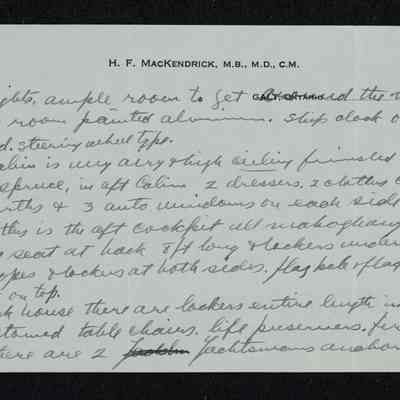 H. F. MACKENDRICK, M.B., M.D., C.M.
GALT, ONTARIO
ights, ample room to get around the
room painted aluminum. Ships clock
d. steering wheel type.
abin is very airy & high ceiling finished
spruce, in aft Cabin 2 dressers, 2 clothes
rths & 3 auto windows on each side
this is the aft cockpit all mahogany
seat at back 7 ft long & lockers under
opes & lockers at both sides, flag pole & flag
on top.
k house there are lockers entire length
table chairs, life preservers,
there are 2 Yachtsmans anchor